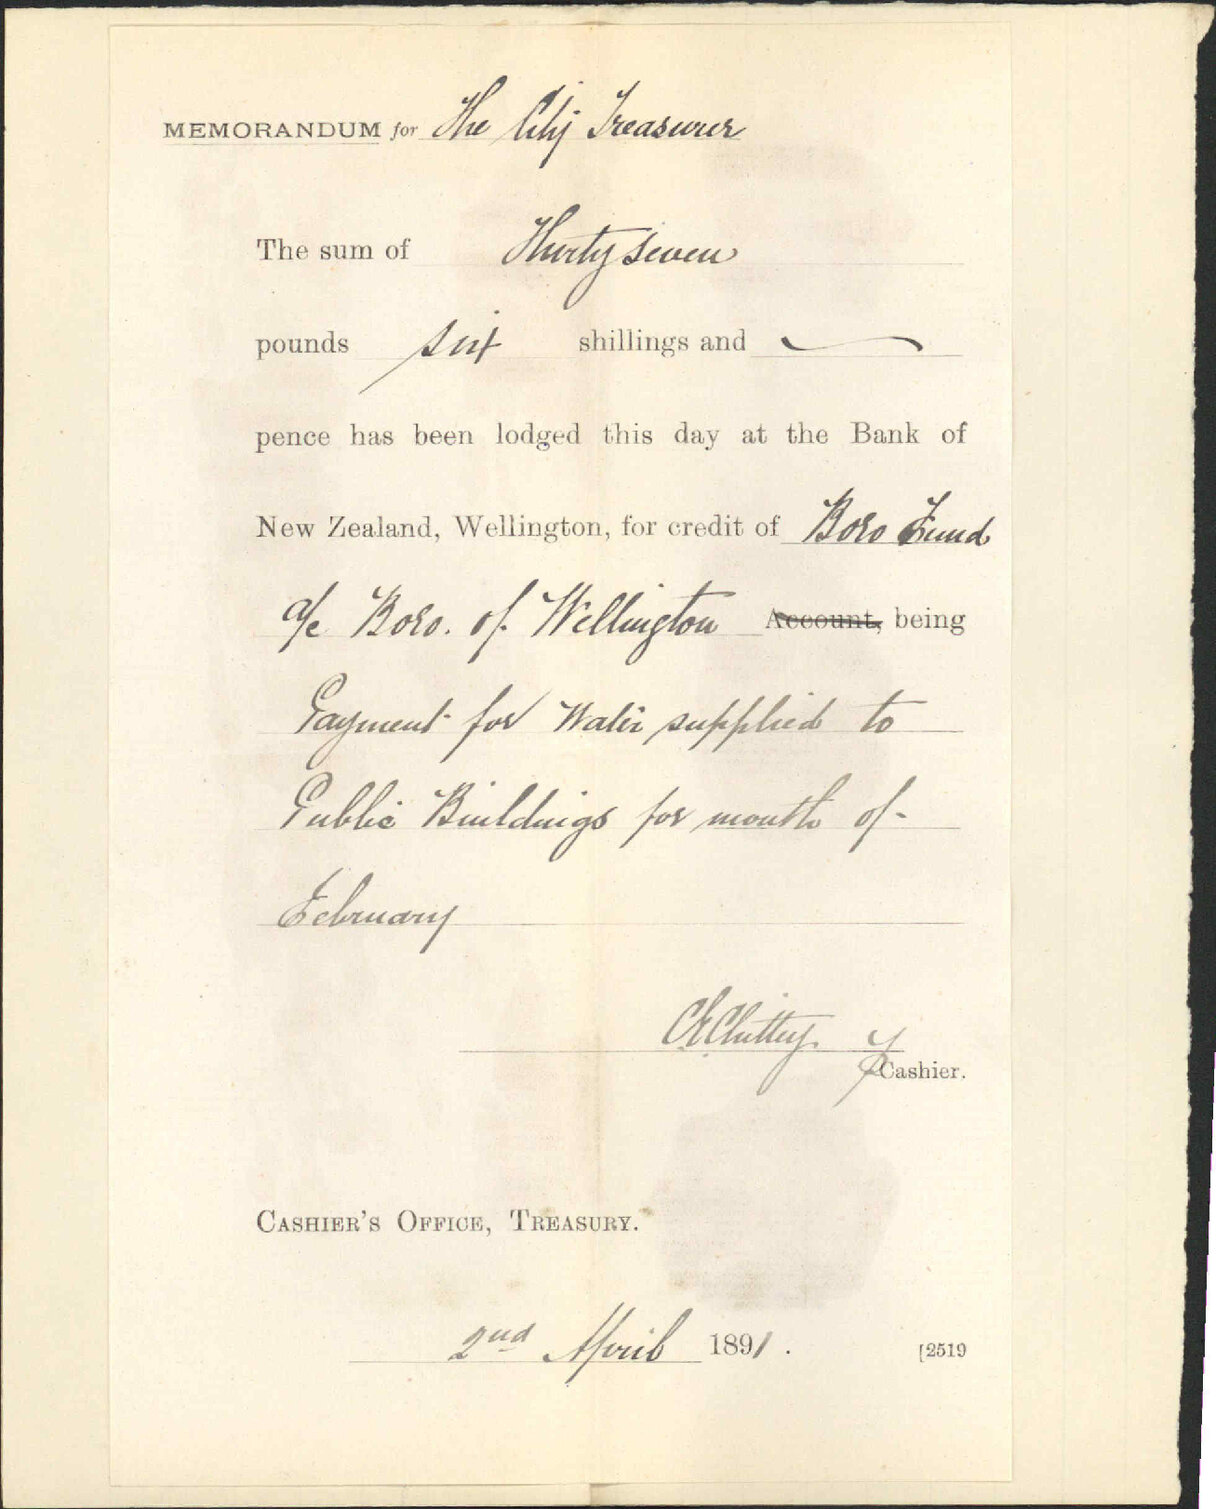 MEMORANDUM for The City Treasurer
The sum of Thirty seven
pounds six shillings and —
pence has been lodged this day at the Bank of
New Zealand, Wellington, for credit of Boro Fund
a/c Boro. of Wellington Account, being
Payment for Water supplied to
Public Buildings for month of
February
Cashier.
CASHIER'S OFFICE, TREASURY.
2nd April 1891.
[2519